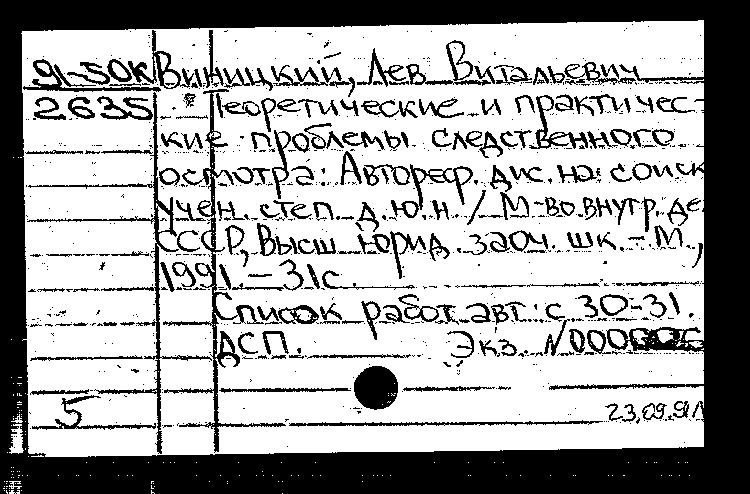 91-50К Виницкий, Лев Витальевич
2635 Теоретические и практичес-
кие проблемы следственного
осмотра: Автореф. дис. на соиск
учен. степ. д.ю.н / М-во внутр. де
СССР, Высш. юрид. заоч. шк. - М.,
1991. - 31с.
Список работ авт: с 30-31.
ДСП. Экз. N
5
23.09.91